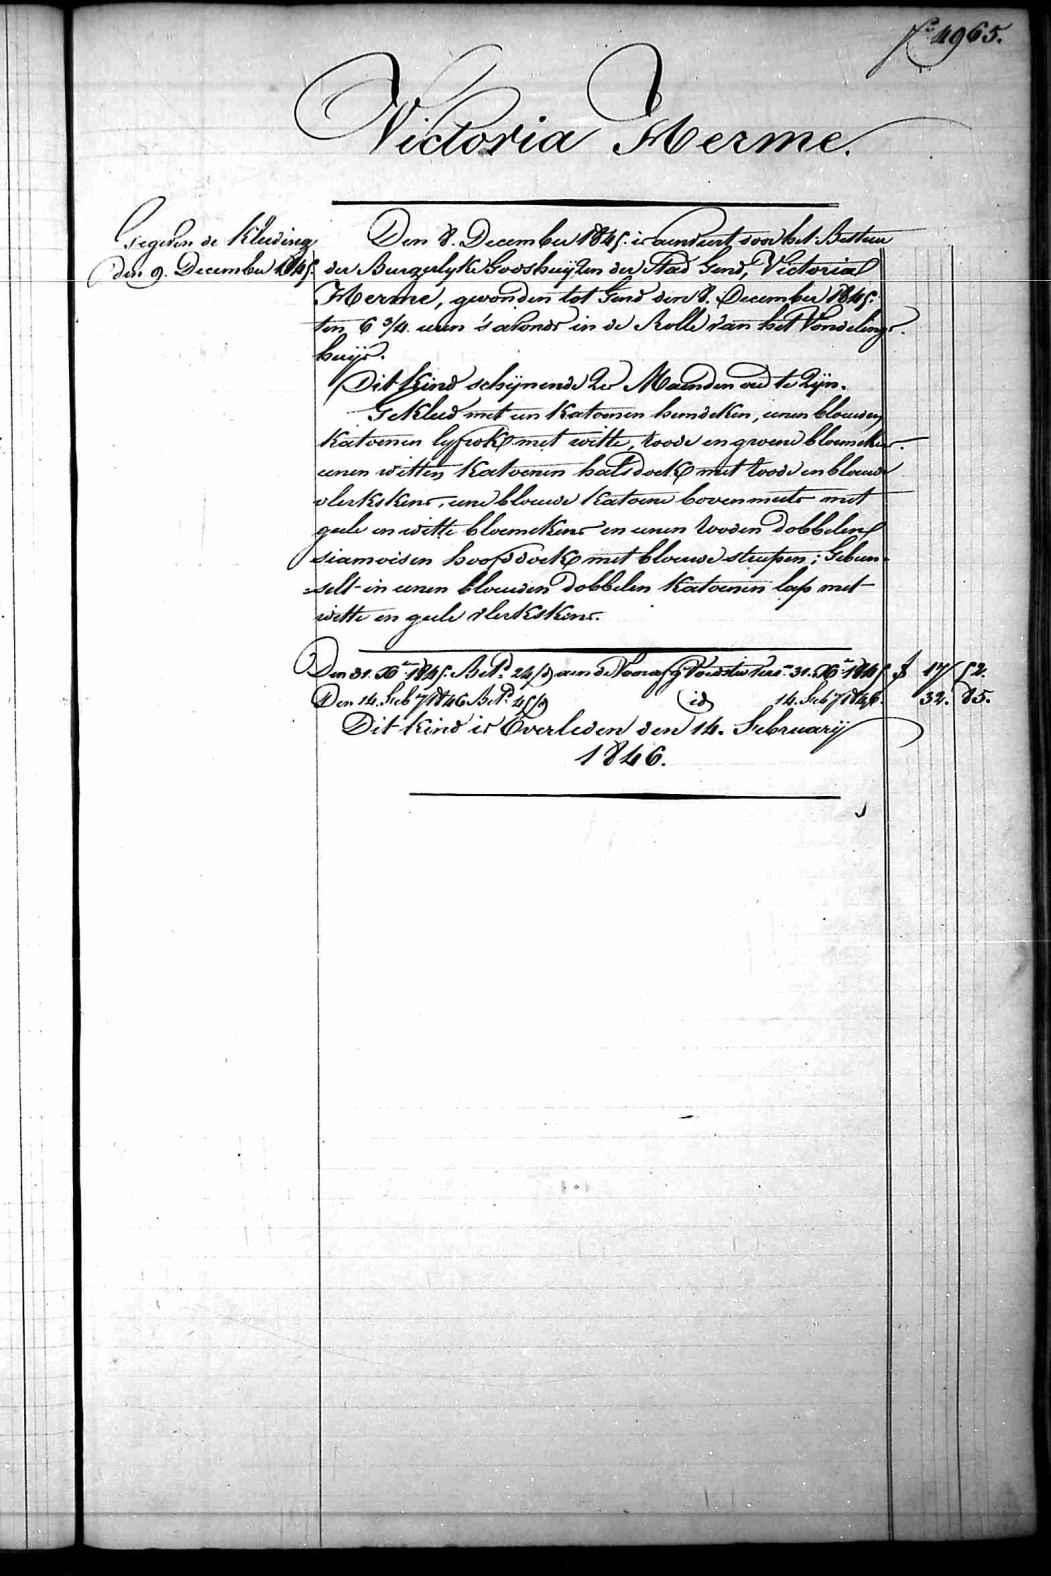 4965.
Victoria Herme.
Gegeven de Kleeding
den 9. December 1845.
Den 8. December 1845. is aenveert door het Bestuer
der Burgerlyke Godshuyzen der Stad Gend, Victoria
Herme, gevonden tot Gend den 8. December 1845.
ten 6 3/4. uren 's avonds in de Rolle van het Vondelings-
huys.
Dit kind schynende 2 Maenden oud te zyn.
Gekleed met een katoenen hemdeken, eenen blauwen
katoenen lyfrok met witte, roode en groene bloemekens.
eenen witten katoenen halsdoek met roode en blauwe
vlekskens, eene blauwe katoene bovenmuts met
geele en witte bloemekens en eenen rooden dobbelen
siamoisen hoofddoek met blauwe streepen; Gebun-
selt in eenen blauwen dobbelen katoenen lap met
witte en geele vlekskens.
Den 31. Xbr 1845. Bet. aen de Voedster 31. Xbr 1845 f 17 52.
Den 14. Feby 1846 Bet. id 14. Feby 1846. 32. 85.
Dit kind is Overleden den 14. February
1846.